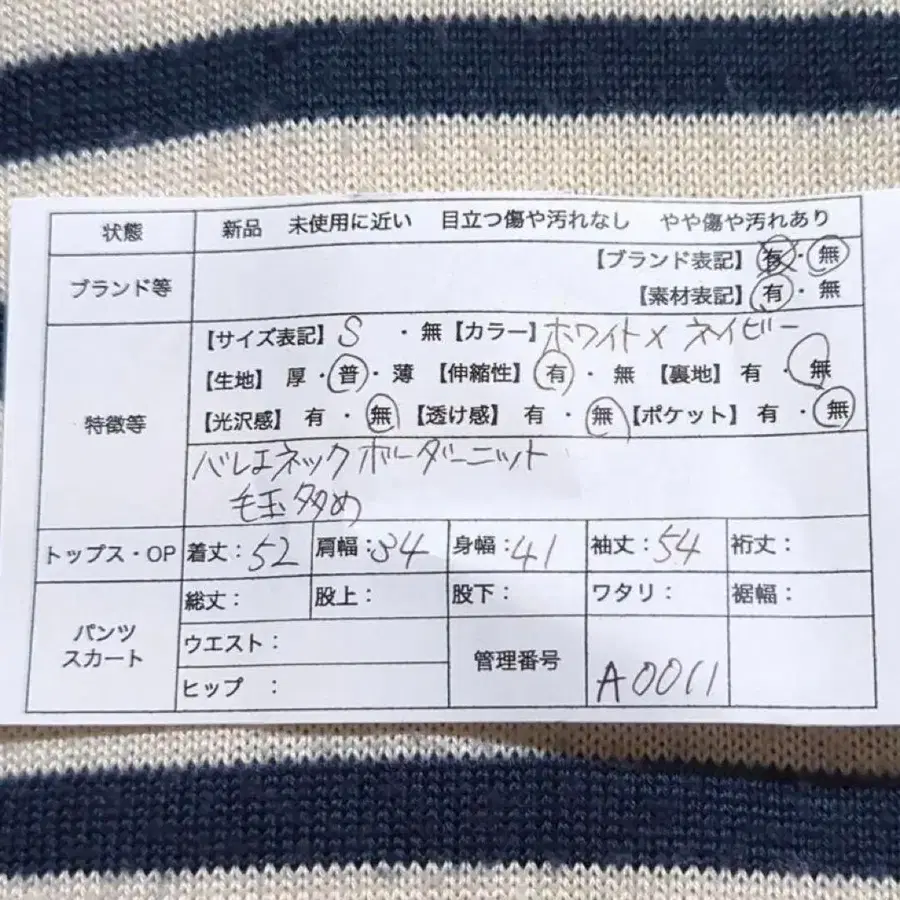 状態 新品 未使用に近い 目立つ傷や汚れなし やや傷や汚れあり
ブランド等 【ブランド表記】有・無
【素材表記】有・無
特徴等 【サイズ表記】S ・無【カラー】ホワイト×ネイビー
【生地】 厚・普・薄 【伸縮性】有・無 【裏地】有・無
【光沢感】有・無 【透け感】有・無【ポケット】有・無
バレエネックボーダーニット
毛玉多め
トップス・OP 着丈：52 肩幅：34 身幅：41 袖丈：54 裄丈：
パンツ スカート 総丈： 股上： 股下： ワタリ： 裾幅：
ウエスト： 管理番号 A0011
ヒップ ：